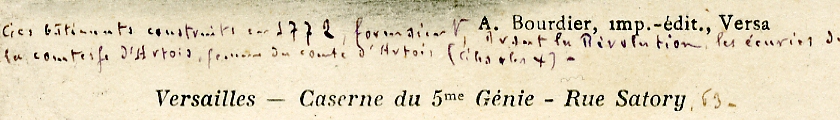 Ces bâtiments construits en 1772, formaient, avant la Révolution, les écuries de
A. Bourdier, imp.-édit., Versa
la comtesse d'Artois, femme du comte d'Artois (Charles X) -
Versailles — Caserne du 5me Génie - Rue Satory 63 -